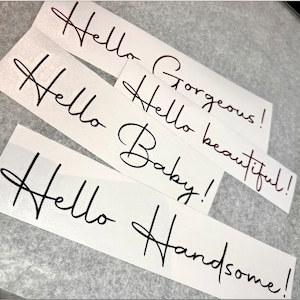 Hello Gorgeous!
Hello beautiful!
Hello Baby!
Hello Handsome!